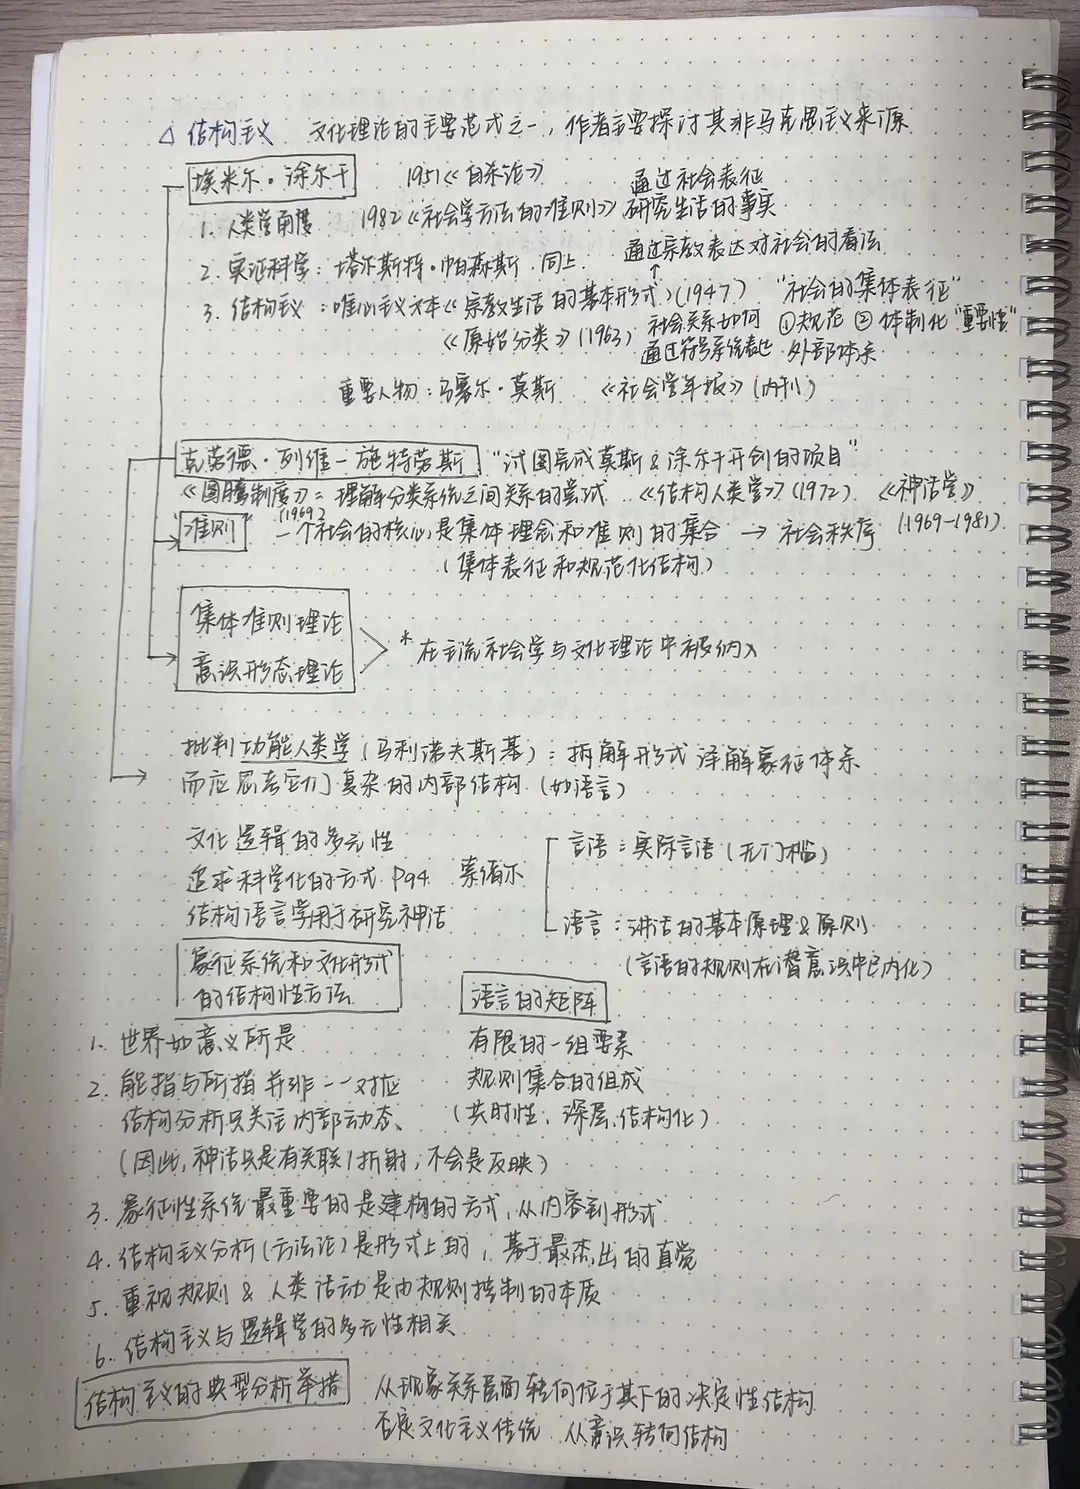 △ 结构主义 文化理论的主要范式之一，作者主要探讨其非马克思主义来源
埃米尔·涂尔干 1951《自杀论》
通过社会表征
1. 人类学角度 1982《社会学方法的准则》研究生活的事实
通过宗教表达对社会的看法
2. 实证科学：塔尔斯特·帕森斯 同上
↑
3. 结构主义：唯心主义文本《宗教生活的基本形式》(1947) "社会的集体表征"
《原始分类》(1963) 社会关系如何 ①规范 ②体制化 "重要性"
通过符号系统表达 外部体系
重要人物：马塞尔·莫斯 《社会学年报》(内刊)
克劳德·列维-施特劳斯 "试图完成莫斯&涂尔干开创的项目"
《图腾制度》= 理解分类系统之间关系的尝试 《结构人类学》(1972) 《神话学》
(1969)
(1969-1981)
"准则" 一个社会的核心是集体理念和准则的集合 → 社会秩序
(集体表征和规范化结构)
集体准则理论
意识形态理论
* 在主流社会学与文化理论中被纳入
批判功能人类学(马利诺夫斯基)：拆解形式 译解象征体系
而应思考它们复杂的内部结构 (如语言)
文化逻辑的多元性
追求科学化的方式 P94
结构语言学用于研究神话
索绪尔
言语：实际言语(无门槛)
语言：讲话的基本原理&原则
(言语的规则在潜意识中已内化)
象征系统和文化形式
的结构性方法
语言的矩阵
有限的一组要素
规则集合的组成
(共时性、深层、结构化)
1. 世界如意义所是
2. 能指与所指并非一一对应
结构分析只关注内部动态、
(因此，神话只是有关联/折射，不会是反映)
3. 象征性系统最重要的是建构的方式，从内容到形式
4. 结构主义分析(方法论)是形式上的，基于最杰出的直觉
5. 重视规则 & 人类活动是由规则控制的本质
6. 结构主义与逻辑学的多元性相关
结构主义的典型分析举措 从现象关系层面转向位于其下的决定性结构
否定文化主义传统 从意识转向结构